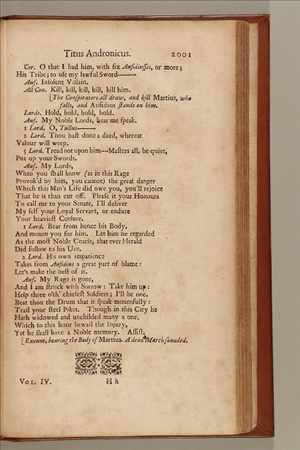 Titus Andronicus. 2001
Cor. O that I had him, with six Aufidiusses, or more;
His Tribe; to use my lawful Sword——
Auf. Insolent Villain.
All Con. Kill, kill, kill, kill, kill him.
[The Conspirators all draw, and kill Martius, who
falls, and Aufidius stands on him.
Lords. Hold, hold, hold, hold.
Auf. My Noble Lords, hear me speak.
1 Lord. O, Tullus——
2 Lord. Thou hast done a deed, whereat
Valour will weep.
3 Lord. Tread not upon him—Masters all, be quiet,
Put up your Swords.
Auf. My Lords,
When you shall know (as in this Rage
Provok'd by him, you cannot) the great danger
Which this Man's Life did owe you, you'll rejoice
That he is thus cut off. Please it your Honours
To call me to your Senate, I'll deliver
My self your Loyal Servant, or endure
Your heaviest Censure.
1 Lord. Bear from hence his Body,
And mourn you for him. Let him be regarded
As the most Noble Coarse, that ever Herald
Did follow to his Urn.
2 Lord. His own impatience
Takes from Aufidius a great part of blame:
Let's make the best of it.
Auf. My Rage is gone,
And I am struck with Sorrow: Take him up:
Help three o'th' chiefest Soldiers; I'll be one.
Beat thou the Drum that it speak mournfully:
Trail your steel Pikes. Though in this City he
Hath widowed and unchilded many a one,
Which to this hour bewail the Injury,
Yet he shall have a Noble memory. Assist.
[Exeunt, bearing the Body of Martius. A dead March sounded.
VOL. IV. H h